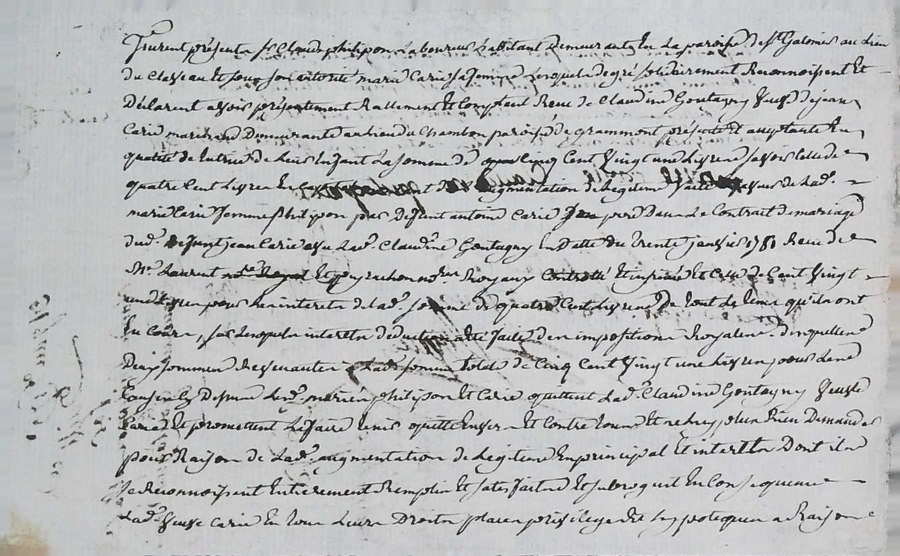 furent présents sr Claude philipon Laboureur habitant Demeurant En La paroisse de st Galmier au lieu
du Clesseau et sous son autorité marie Carie sa femme Lesquels de gré solidairement Reconnoissent Et
Déclarent avoir présentement Réellement Et Comptant Reçu de Claudine Goutagny Veuve de jean
Carie marchand Demeurante au lieu du Chambon paroisse de grammont présente Et acceptante En
qualité de tutrice de Leurs Enfant La somme de Cinq Cent Vingt une Livres savoir Celle de
quatre Cent Livres En augmentation de Legitime faite En faveur de Lad.
marie Carie femme philipon par Défunt antoine Carie pere Dans Le Contrat de mariage
dud. Défunt jean Carie avec Lad. Claudine Goutagny En Datte du trente janvier 1781 Reçu de
Me Laurent Et Royaux Controllé Et insinué Et Celle de Cent Vingt
une Livres pour Les interets de Lad. somme de quatre Cent Livres, de tout Le tems qu'ils ont
En Cours, sur Lesquels interets Déduction a été faite des impositions Royalles Desquelles
Deux sommes Resultante Lad. somme totale de Cinq Cent Vingt une Livres
Lesd. mariés philipon Et Carie quittent Lad. Claudine Goutagny Veuve
Carie Et promettent La faire tenir quitte Envers Et Contre tous Et ne Luy plus Rien Demander
pour Raison de Lad. augmentation de Legitime En principal Et interets Dont ils
se Reconnoissent Entierement Remplis Et satisfaits Et subrogent En Consequence
Lad. Veuve Carie En tous Leurs Droits places privileges Et hypoteques a Raison